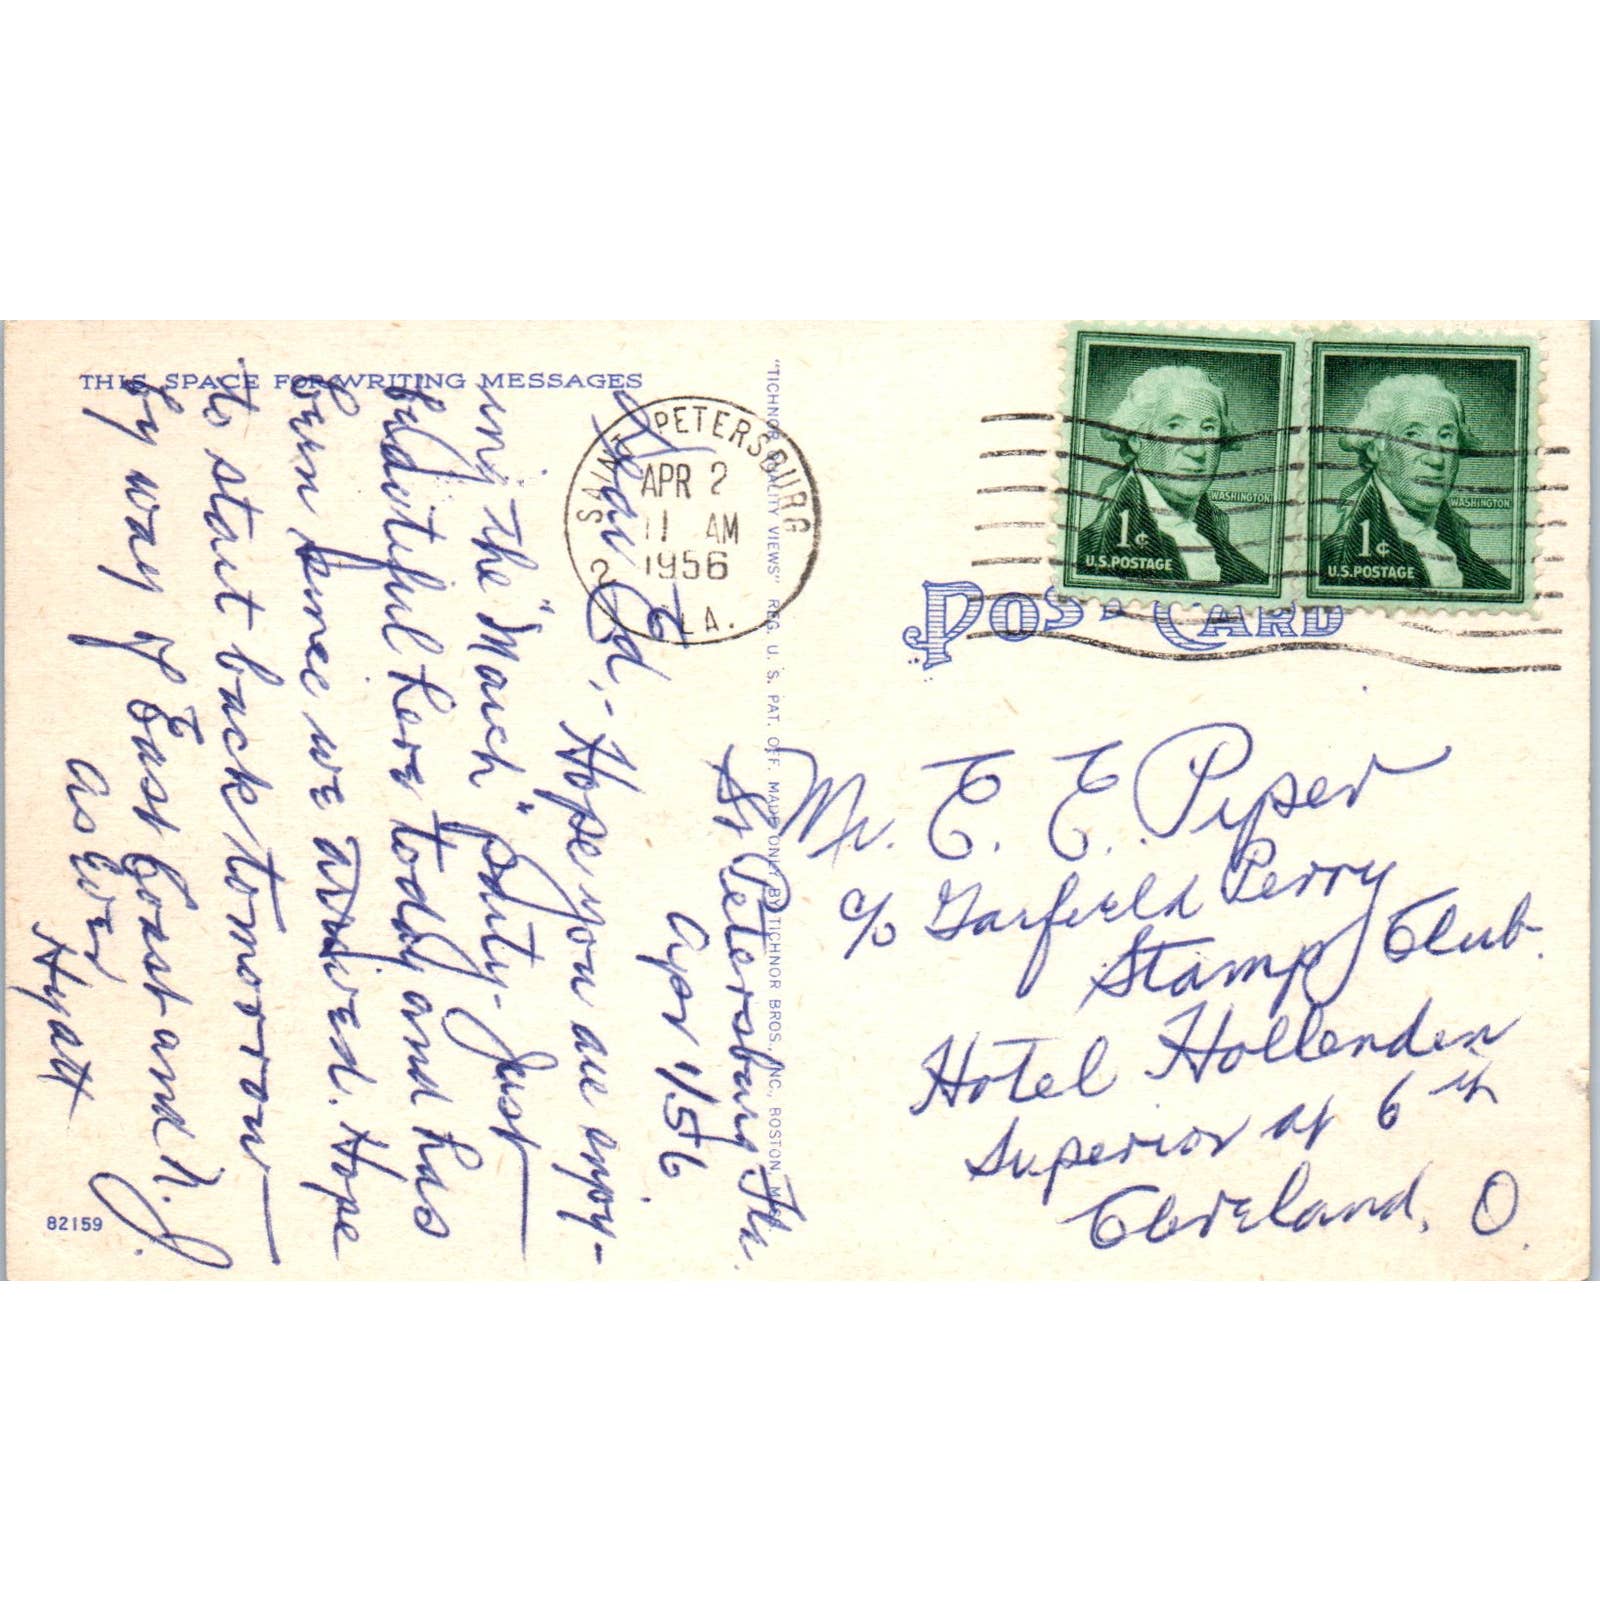 THIS SPACE FOR WRITING MESSAGES
St Petersburg Fla.
Apr 1/56.
Dear Ed,- Hope you are enjoy-
ing the "March" party - Just
beautiful here today and has
been since we arrived. Hope
to start back tomorrow
by way of East Coast and N.J.
As Ever
Hyatt
82159
SAINT PETERSBURG
APR 2
11 AM
1956
2 FLA.
"TICHNOR QUALITY VIEWS" REG. U. S. PAT. OFF. MADE ONLY BY TICHNOR BROS., INC., BOSTON, MASS.
1¢ WASHINGTON
U.S. POSTAGE
1¢ WASHINGTON
U.S. POSTAGE
POST CARD
Mr. E. E. Piper
c/o Garfield Perry
Stamp Club.
Hotel Hollenden
Superior at 6th
Cleveland, O.